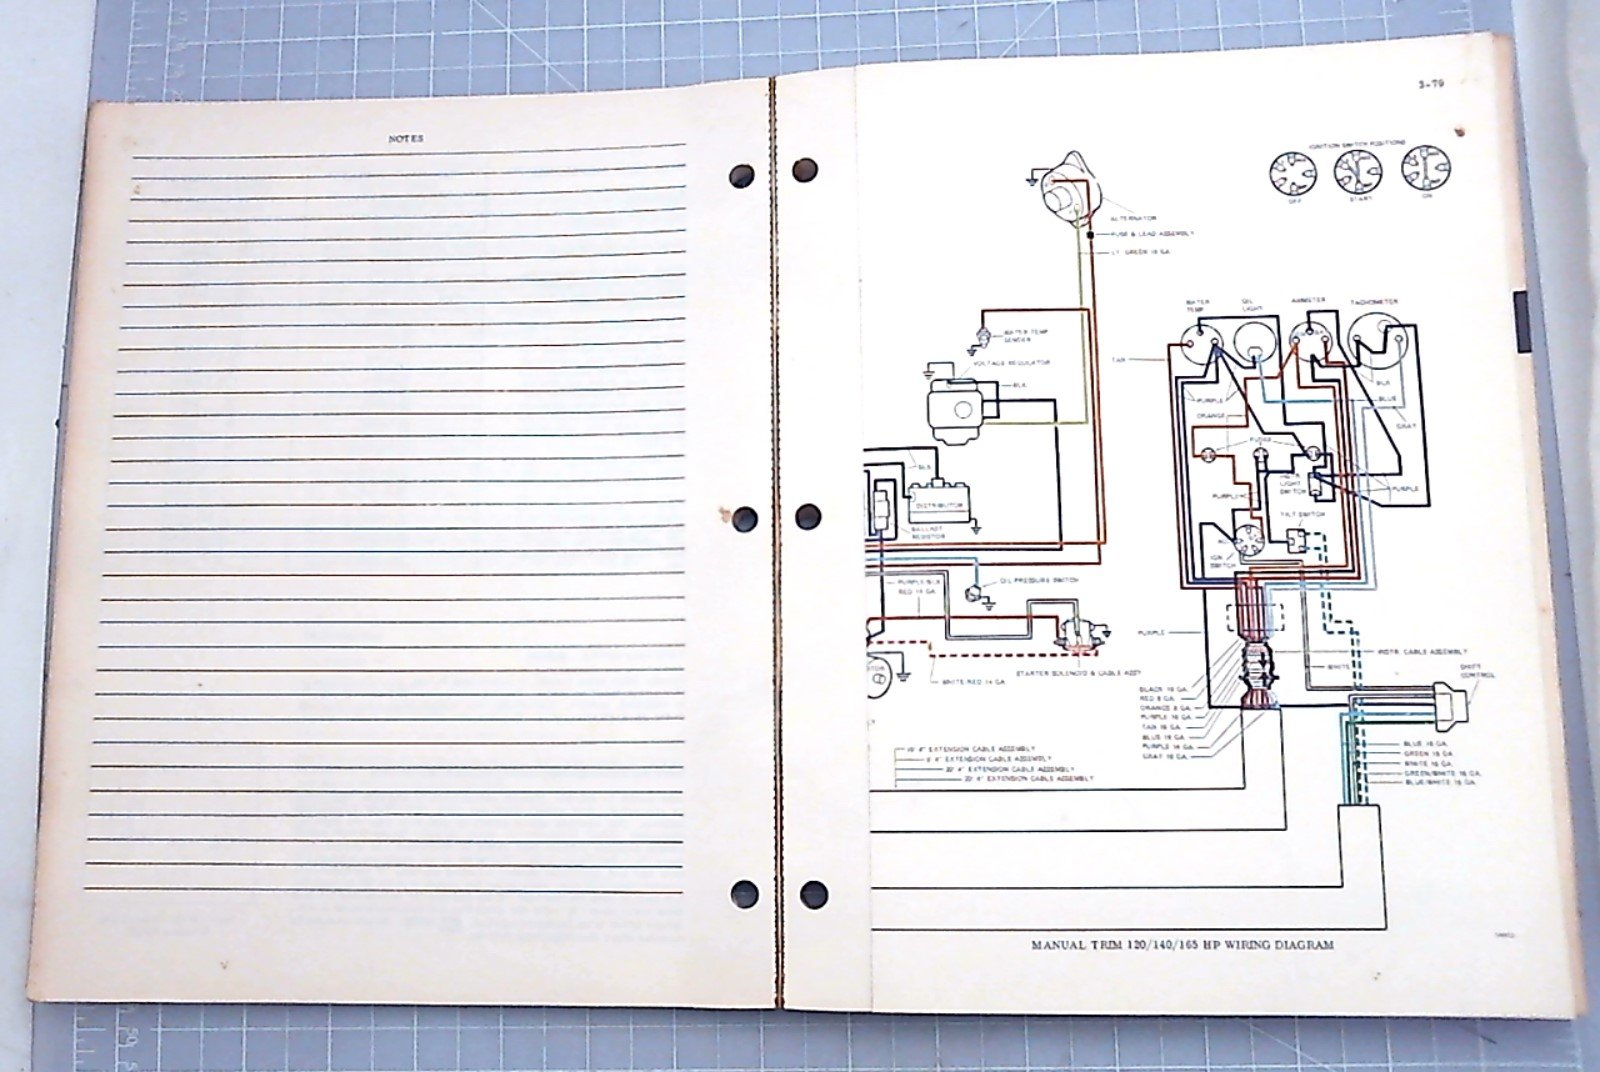 NOTES
3-79
IGNITION SWITCH POSITIONS
OFF
START
ON
ALTERNATOR
FUSE & LEAD ASSEMBLY
LT. GREEN 16 GA.
WATER TEMP
OIL LIGHT
AMMETER
TACHOMETER
WATER TEMP SENDER
VOLTAGE REGULATOR
TAN
BLK
BLK
PURPLE
BLUE
ORANGE
GRAY
FUSE
BLK
PURPLE
LIGHT SWITCH
PURPLE
DISTRIBUTOR
TILT SWITCH
BALLAST RESISTOR
IGN SWITCH
PURPLE/BLK
RED 14 GA.
OIL PRESSURE SWITCH
PURPLE
INSTR. CABLE ASSEMBLY
WHITE
SHIFT CONTROL
STARTER SOLENOID & CABLE ASSY
WHITE/RED 14 GA.
BLACK 16 GA.
RED 8 GA.
ORANGE 8 GA.
PURPLE 16 GA.
TAN 16 GA.
BLUE 16 GA.
PURPLE 14 GA.
GRAY 16 GA.
EXTENSION CABLE ASSEMBLY
EXTENSION CABLE ASSEMBLY
EXTENSION CABLE ASSEMBLY
EXTENSION CABLE ASSEMBLY
BLUE 16 GA.
GREEN 16 GA.
WHITE 16 GA.
GREEN/WHITE 16 GA.
BLUE/WHITE 16 GA.
MANUAL TRIM 120/140/165 HP WIRING DIAGRAM